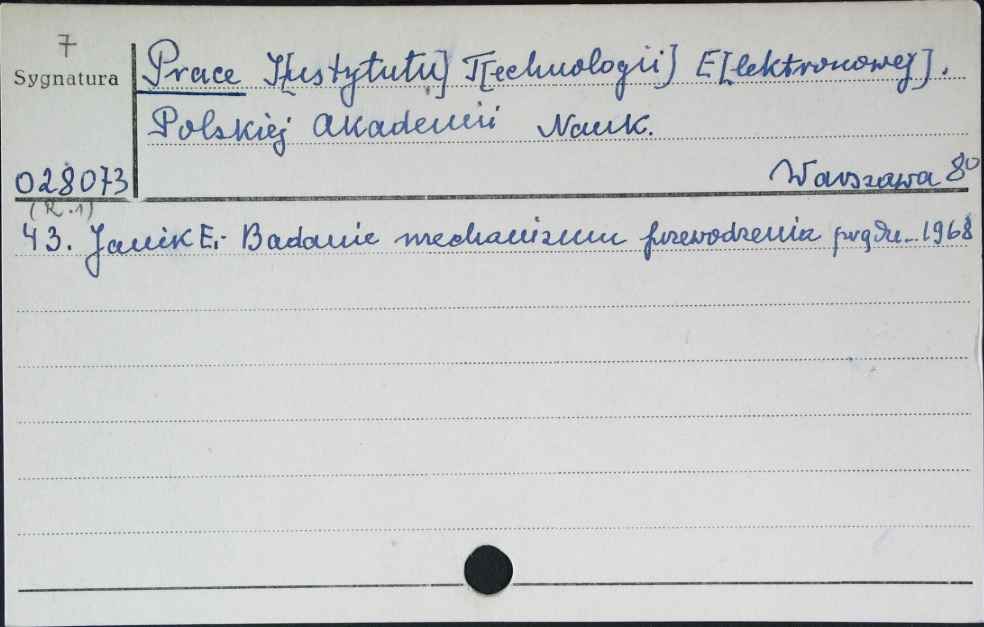 7
Sygnatura
Prace I[nstytutu] T[echnologii] E[lektronowej].
Polskiej Akademii Nauk.
Warszawa 8°
028073
(R.1)
43. Janik E.: Badanie mechanizmu przewodzenia prądu... 1968